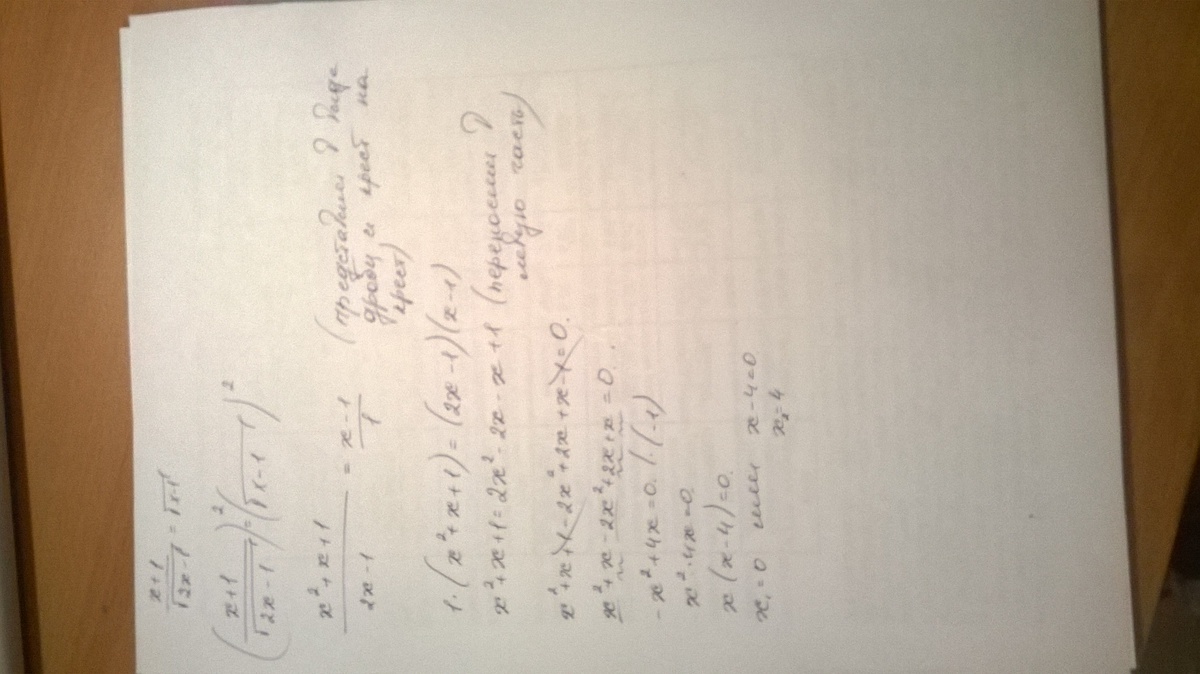 x+1/√2x-1 = √x-1
(x+1/√2x-1)² = (√x-1)²
x²+x+1/2x-1 = x-1/1 (представим в виде
дроби и крест на
крест)
1·(x²+x+1)=(2x-1)(x-1)
x²+x+1=2x²-2x-x+1 (переносим в
левую часть)
x²+x+1-2x²+2x+x-1=0.
x²+x-2x²+2x+x=0.
-x²+4x=0. (·(-1)
x²-4x=0
x(x-4)=0.
x₁=0 или x-4=0
x₂=4